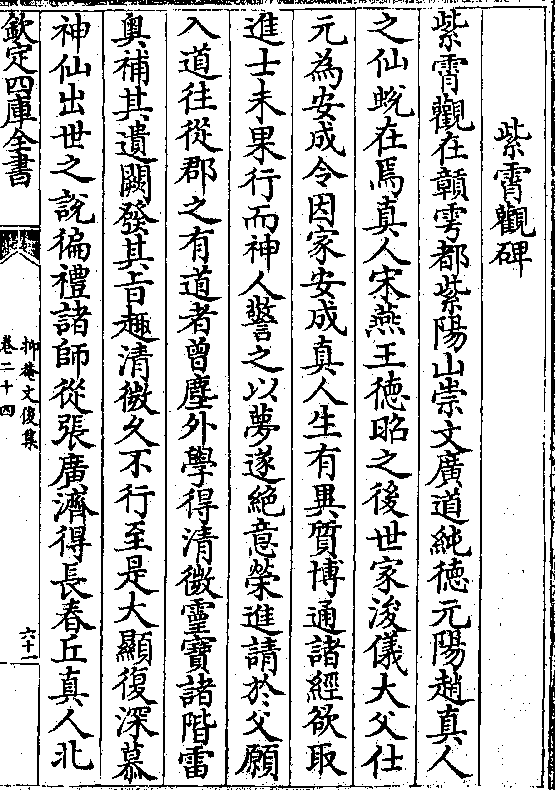 紫霄觀碑
紫霄觀在贛雩都紫陽山崇文廣道純德元陽趙真人
之仙蛻在焉真人宋燕王德昭之後世家浚儀大父仕
元為安成令因家安成真人生有異質博通諸經欲取
進士未果行而神人警之以夢遂絕意榮進請於父願
入道往從郡之有道者曾塵外學得清微靈寶諸階雷
奥補其遺闕發其旨趣清微久不行至是大顯復深慕
神仙出世之說徧禮諸師從張廣濟得長春丘真人北
欽定四庫全書
抑菴文後集
卷二十四
六十一